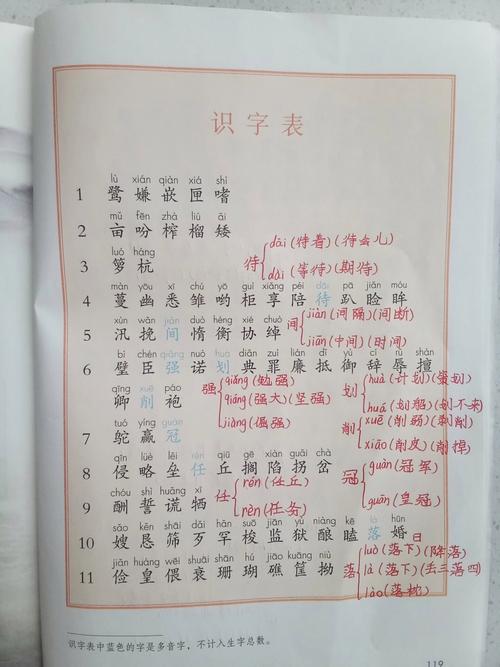 识字表
lù xián qiàn xiá shì
1 鹭 嫌 嵌 匣 嗜
mǔ fēn zhà liú ǎi
2 亩 吩 榨 榴 矮
luó háng
3 箩 杭
待 dāi (待着)(待会儿)
dài (等待)(期待)
màn yōu xī chú yō guì xiǎng péi dāi pā jiǎn móu
4 蔓 幽 悉 雏 哟 柜 享 陪 待 趴 睑 眸
xùn wǎn jiàn duò héng xié chuò
5 汛 挽 间 惰 衡 协 绰
间 jiàn (间隔)(间断)
jiān (中间)(时间)
bì chén qiǎng nuò huá diǎn zuì lián dǐ yù cí rǔ shàn
6 璧 臣 强 诺 划 典 罪 廉 抵 御 辞 辱 擅
qīng xuē páo
卿 削 袍
强 qiǎng (勉强)
qiáng (强大)(坚强)
jiàng (倔强)
划 huà (计划)(策划)
huá (划船)(划不来)
削 xuē (削弱)(剥削)
xiāo (削皮)(削掉)
tuó yíng guān
7 鸵 赢 冠
qīn lüè lěi rén qiū gē xiàn guǎi chà
8 侵 略 垒 任 丘 搁 陷 拐 岔
冠 guàn (冠军)
guān (皇冠)
chóu shì huǎng xī
9 酬 誓 谎 牺
任 rén (任丘)
rèn (任务)
sǎo kěn shāi dǎi hǎn suō jiān yù niàng kē là hūn
10 嫂 恳 筛 歹 罕 梭 监 狱 酿 瞌 落 婚
jiǎn huáng wēi shuāi shān hú jiāo kuāng niù
11 俭 皇 偎 衰 珊 瑚 礁 筐 拗
落 luò (落下)(降落)
là (落下)(丢三落四)
lào (落枕)
识字表中蓝色的字是多音字，不计入生字总数。
119